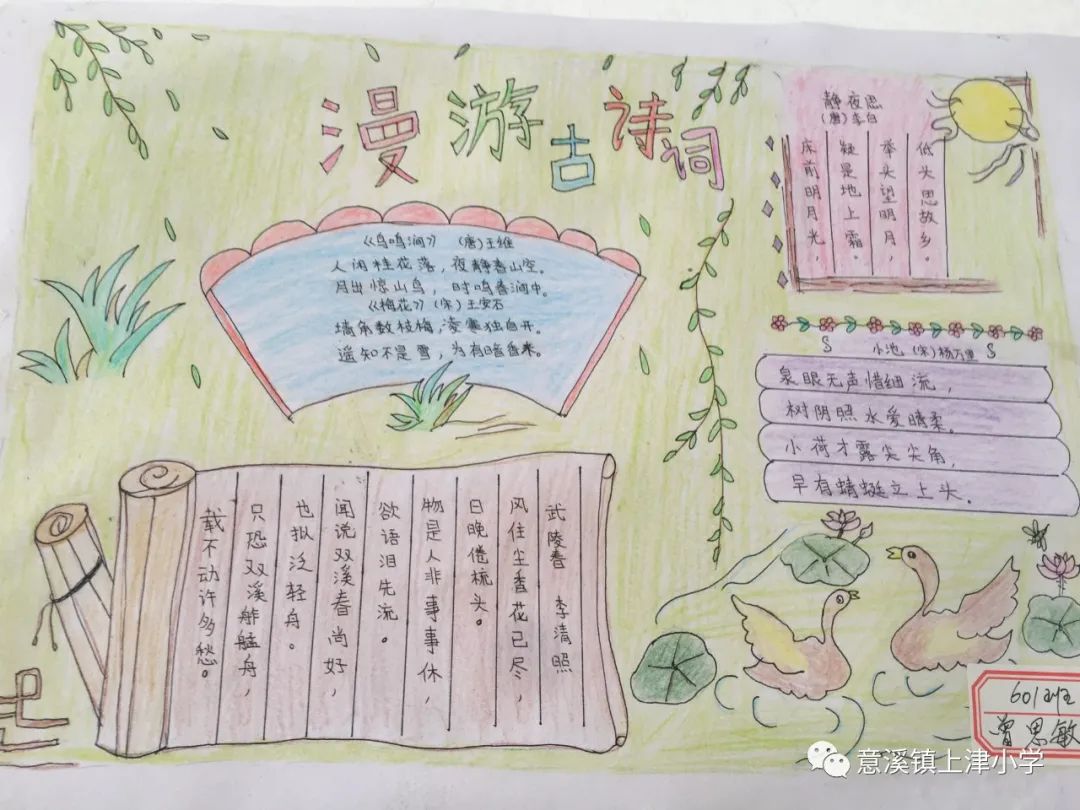 漫游古诗词
《鸟鸣涧》 (唐)王维
人闲桂花落,夜静春山空。
月出惊山鸟,时鸣春涧中。
《梅花》(宋)王安石
墙角数枝梅,凌寒独自开。
遥知不是雪,为有暗香来。
静夜思
(唐)李白
床前明月光,
疑是地上霜。
举头望明月,
低头思故乡。
小池 (宋)杨万里
泉眼无声惜细流,
树阴照水爱晴柔。
小荷才露尖尖角,
早有蜻蜓立上头。
武陵春 李清照
风住尘香花已尽,
日晚倦梳头。
物是人非事事休,
欲语泪先流。
闻说双溪春尚好,
也拟泛轻舟。
只恐双溪舴艋舟,
载不动许多愁。
601班
曾思敏
意溪镇上津小学